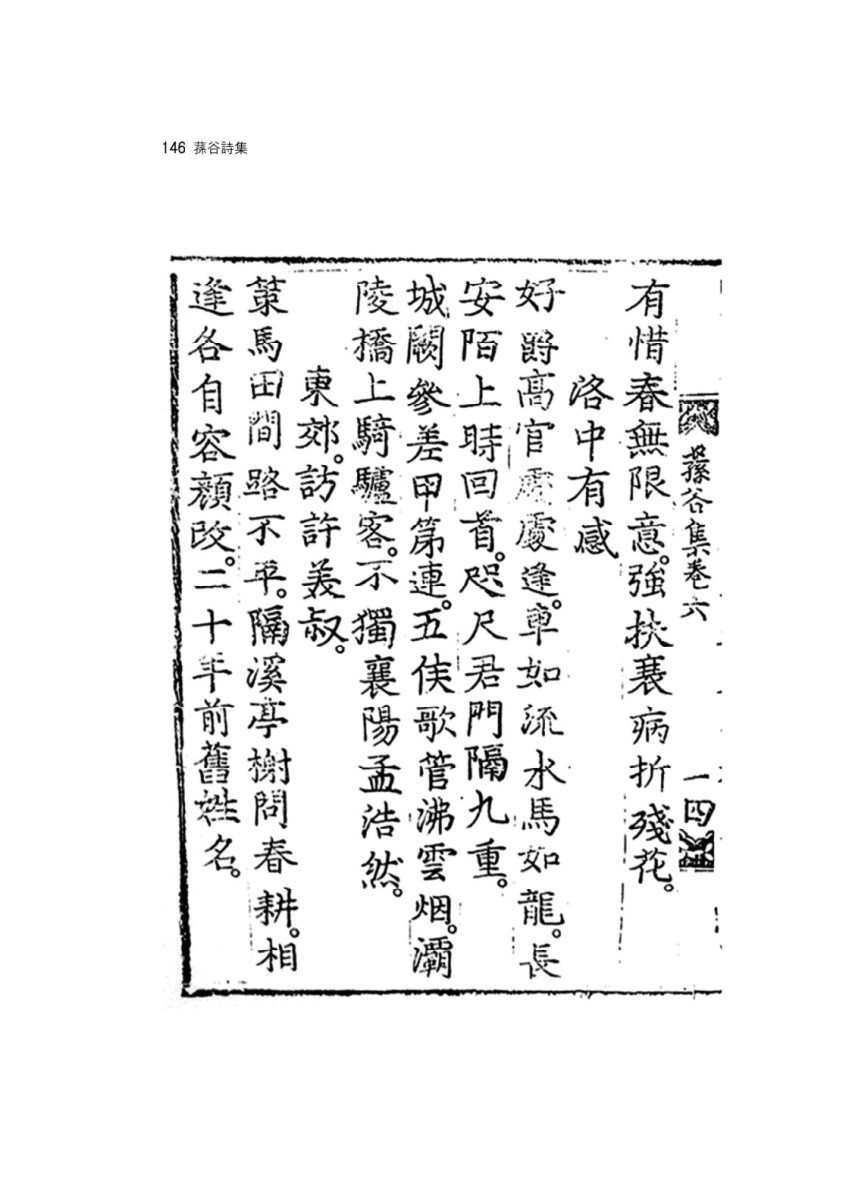 146 蓀谷詩集
蓀谷集卷六
一四
有惜春無限意。強扶衰病折殘花。
洛中有感
好爵高官處處逢。車如流水馬如龍。長
安陌上時回首。咫尺君門隔九重。
城闕參差甲第連。五侯歌管沸雲烟。灞
陵橋上騎驢客。不獨襄陽孟浩然。
東郊。訪許美叔。
策馬田間路不平。隔溪亭榭問春耕。相
逢各自容顏改。二十年前舊姓名。